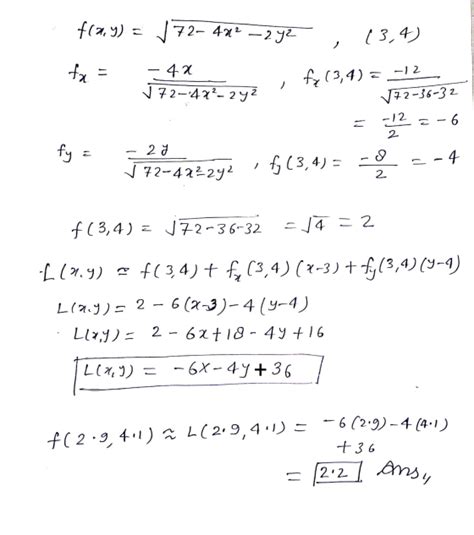 f(x,y) = √72-4x²-2y² , (3,4)
fx = -4x / √72-4x²-2y² , fx(3,4) = -12 / √72-36-32
= -12/2 = -6
fy = -2y / √72-4x²-2y² , fy(3,4) = -8/2 = -4
f(3,4) = √72-36-32 = √4 = 2
L(x,y) ≃ f(3,4) + fx(3,4)(x-3) + fy(3,4)(y-4)
L(x,y) = 2-6(x-3)-4(y-4)
L(x,y) = 2-6x+18-4y+16
L(x,y) = -6x-4y+36
f(2.9,4.1) ≈ L(2.9,4.1) = -6(2.9)-4(4.1)
+36
= 2.2 Ans,,